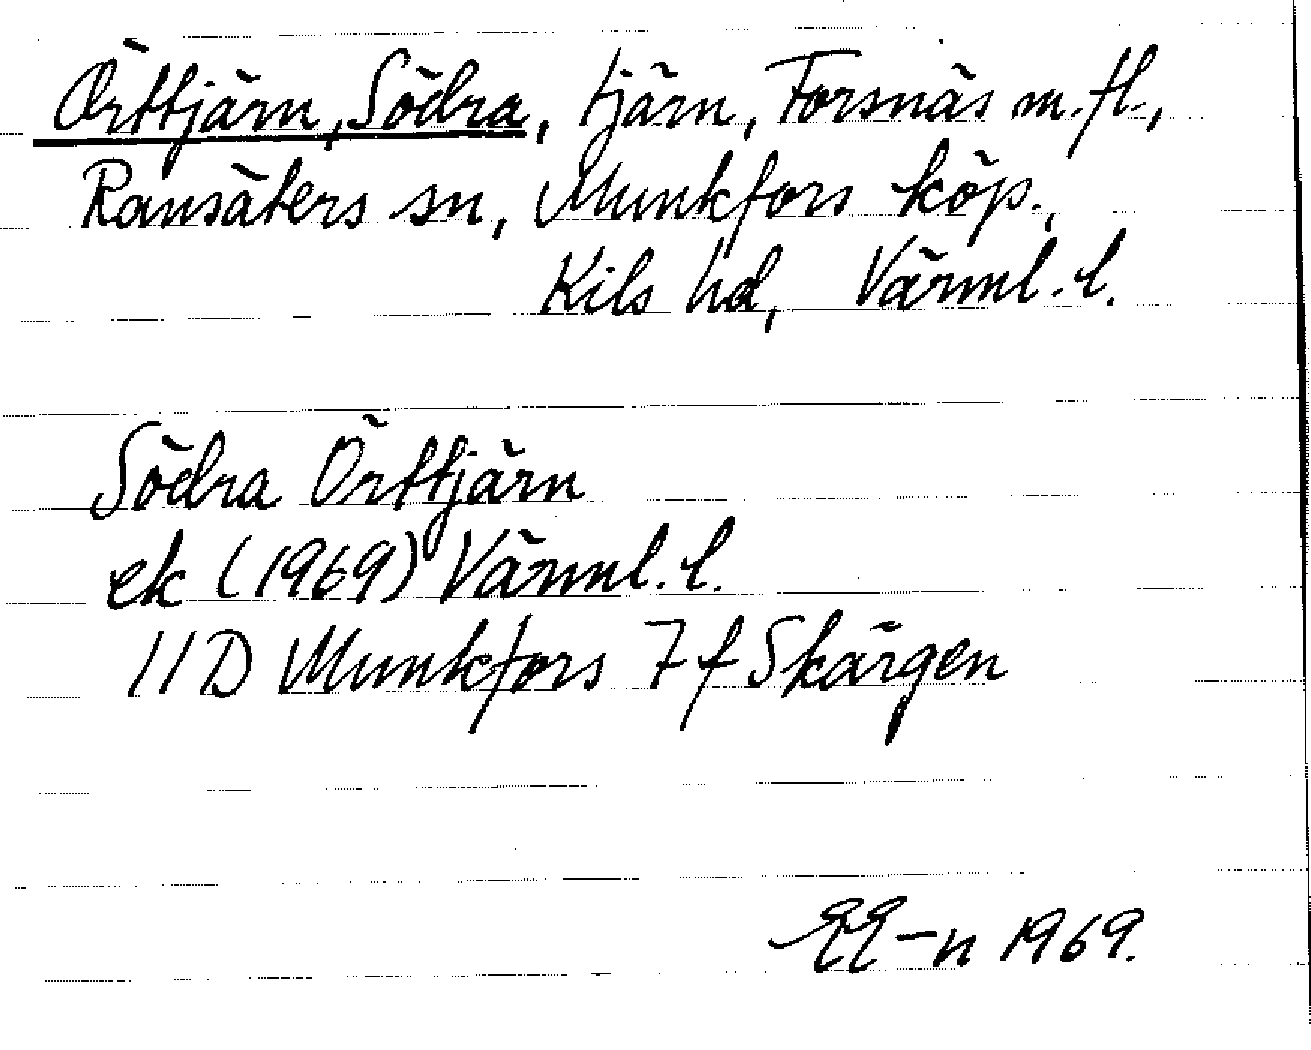 Örttjärn, Södra, tjärn, Forsnäs m.fl.,
Ransäters sn, Munkfors köp.,
Kils hd, Värml. l.
Södra Örttjärn
ek (1969) Värml. l.
11D Munkfors 7f Skärgen
EE-n 1969.